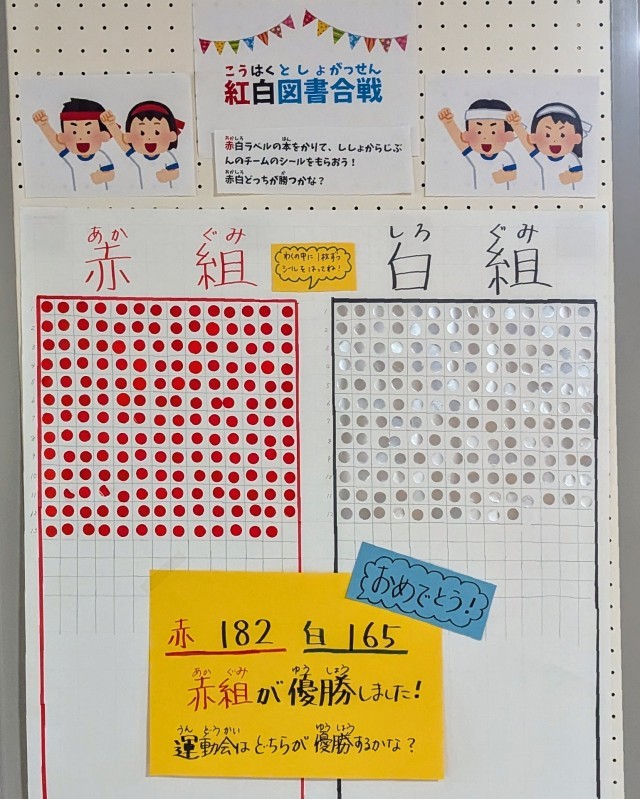 こうはくとしょがっせん
紅白図書合戦
あかしろ ほん
赤白ラベルの本をかりて、ししょからじぶ
んのチームのシールをもらおう！
あかしろ か
赤白どっちが勝つかな？
あか ぐみ
赤 組
わくの中に1枚ずつ
シールをはってね！
しろ ぐみ
白 組
おめでとう！
赤 182 白 165
あか ぐみ ゆう しょう
赤組が優勝しました！
うん どう かい ゆう しょう
運動会はどちらが優勝するかな？